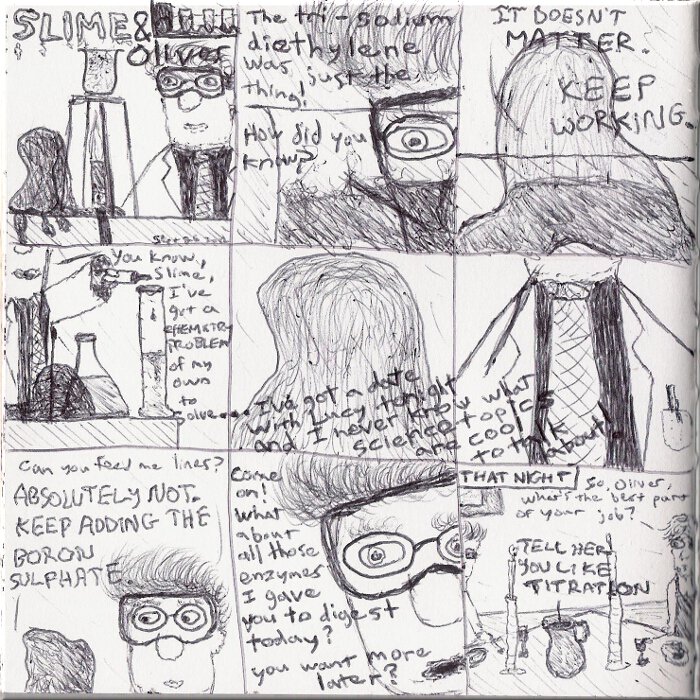 SLIME &
Oliver
The tri-sodium
diethylene
was just the
thing!
How did you
know?
IT DOESN'T
MATTER.
KEEP
WORKING.
You know,
Slime,
I've
got a
CHEMISTRY
PROBLEM
of my
own
to
solve....
I've got a date
with Lucy tonight
and I never know what
science topics
are cool
to talk
about!
Can you feed me lines?
ABSOLUTELY NOT.
KEEP ADDING THE
BORON
SULPHATE.
Come
on!
What
about
all those
enzymes
I gave
you to digest
today?
you want more
later?
THAT NIGHT
So, Oliver,
what's the best part
of your job?
TELL HER
YOU LIKE
TITRATION